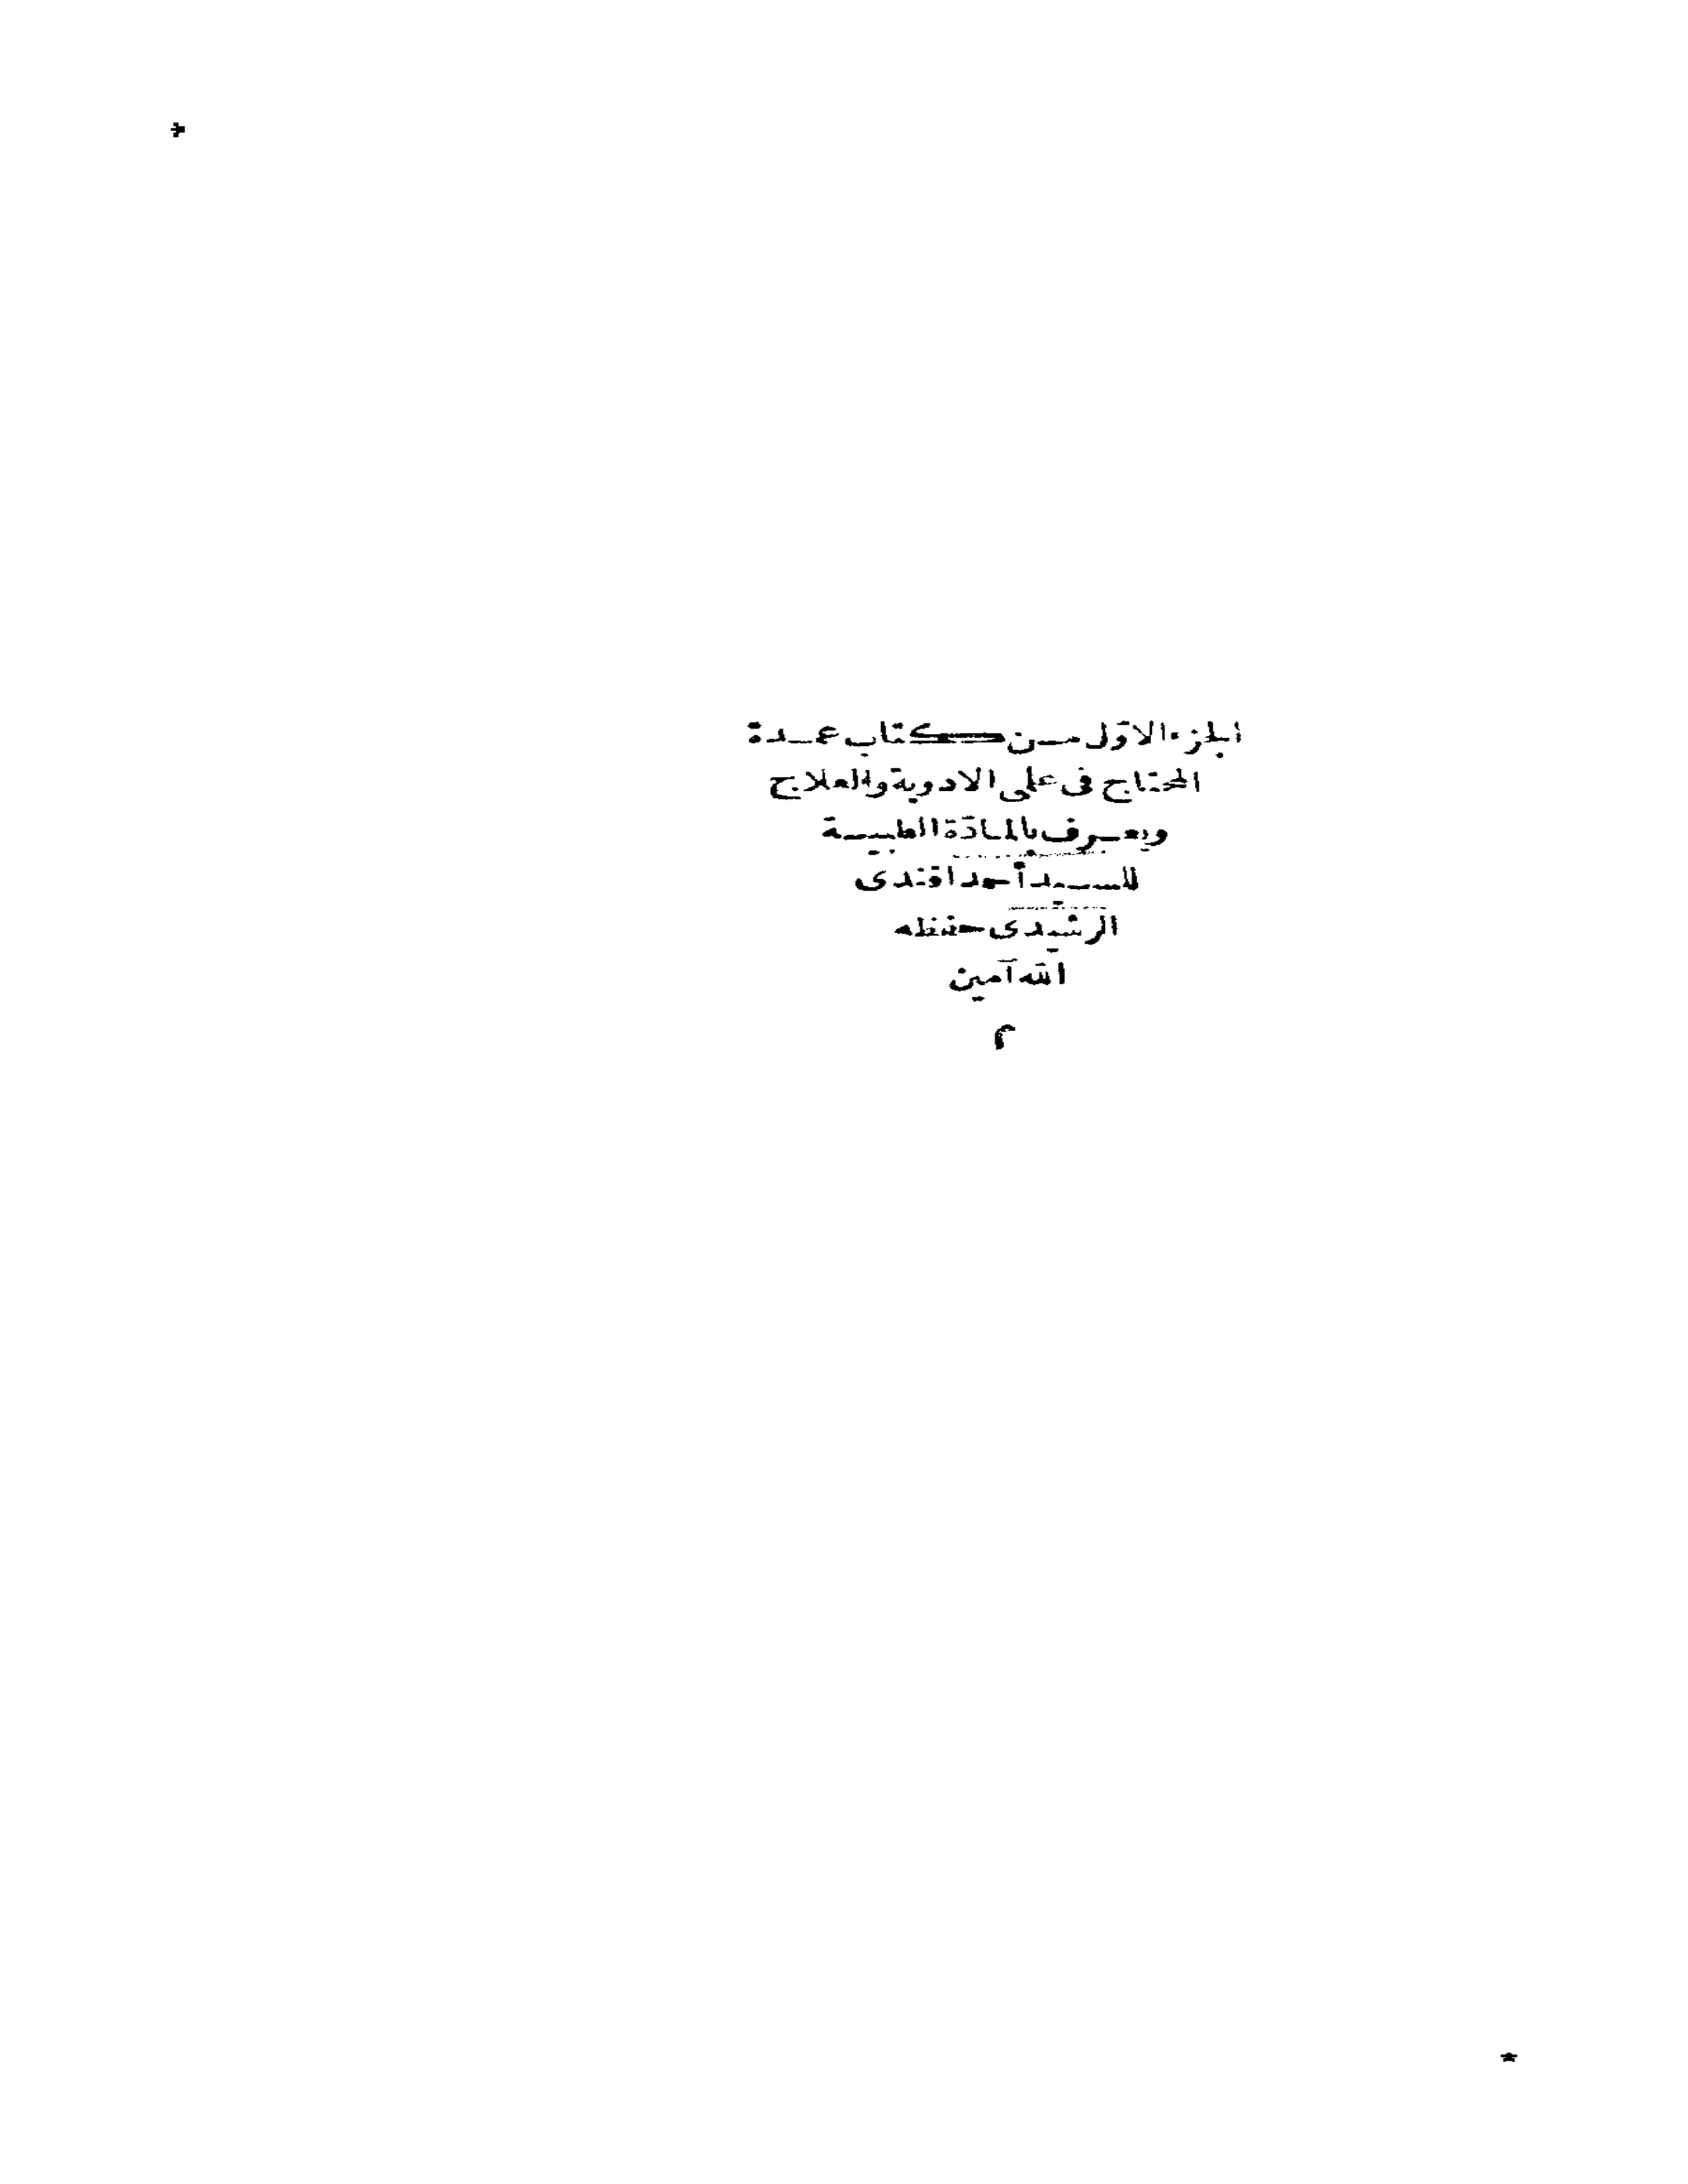 الجزء الاوّل مـن كتاب عمـدة
المحتاج فى علمى الادوية والعلاج
ويعـرف بالمـادّة الطبيـة
للسـيد أحمد افندى
الرشيدى حفظه
الله آمين
م